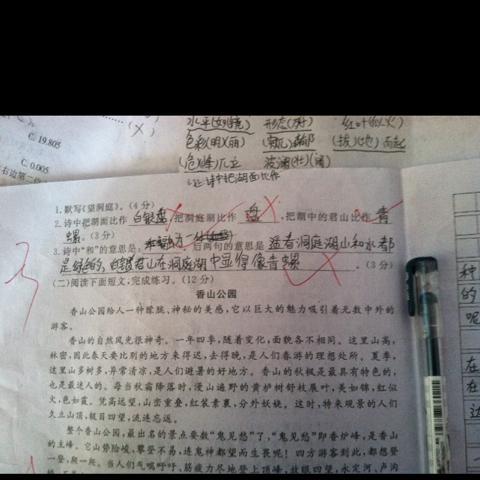 C. 19.805
(X)
C. 0.005
水平(如镜) 形态( ) 红叶(似火)
色彩(明)(丽) (拔)(地)而起
(危)(峰)兀立 波澜(壮)(阔)
诗中把湖面比作
1.默写《望洞庭》。(4分)
2.诗中把湖面比作 白银盘 ,把洞庭湖比作 盘 ,把湖中的君山比作 青
螺 。(3分)
3.诗中“和”的意思是 ,后两句的意思是 遥看洞庭湖山和水都
是绿色的,白银君山在洞庭湖中显得像青螺 。(3分)
(二)阅读下面短文,完成练习。(12分)
香山公园
香山公园给人一种朦胧、神秘的美感,它以巨大的魅力吸引着无数中外的
游客。
香山的自然风光很神奇。一年四季,随着变化,面貌各不相同。这里山高,
林密,因此春天要比别的地方来得迟,去得晚,是人们春游的理想处所。夏季,
这里山多树多,异常清凉,是人们避暑的好地方。香山的秋枫是最具有特色的,
也是最迷人的。每当秋霜降落时,漫山遍野的黄栌树舒枝展叶,美如锦,红似
火,色如霞。凭高远望,山峦重叠,红装素裹,分外妖娆。这时,特来观景的人们
久立山顶,极目四望,流连忘返。
整个香山公园,最出名的景点要数“鬼见愁”了,“鬼见愁”即香炉峰,是香山
的主峰。它山势险峻,攀登不易,连鬼神都望而生畏呢!四方游客到此,都想登
一登,爬一爬。当人们气喘吁吁,筋疲力尽地登上顶峰,放眼四望,永定河、卢沟
种
的
呢
在
在
边